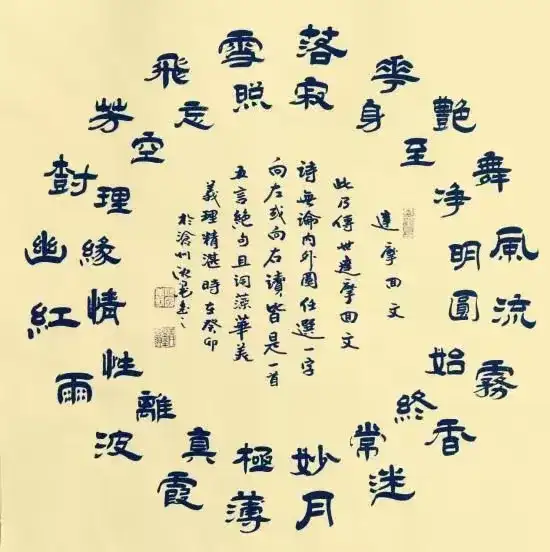 落華艷舞風流霧香迷月薄霞波雨紅幽樹芳飛雪
寂身至净明圓始終常妙極真離性情緣理空忘照
達摩回文
此乃傳世達摩回文
詩無論內外圈任選一字
向左或向右讀皆是一首
五言絕句且詞藻華美
義理精湛時在癸卯
於滄州